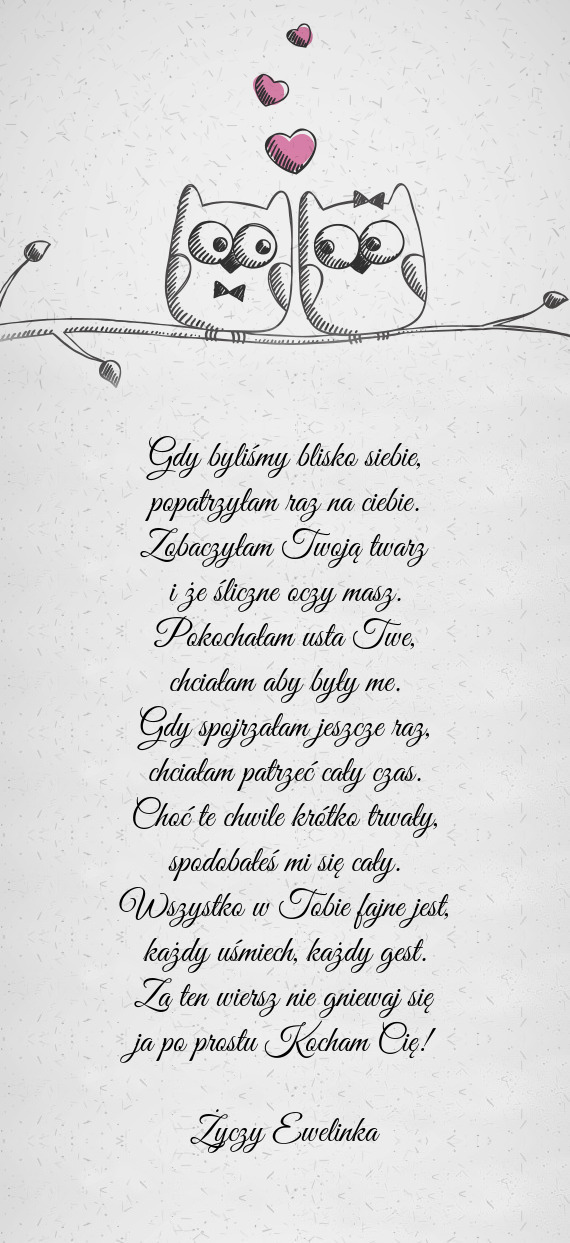 Gdy byliśmy blisko siebie,
popatrzyłam raz na ciebie.
Zobaczyłam Twoją twarz
i że śliczne oczy masz.
Pokochałam usta Twe,
chciałam aby były me.
Gdy spojrzałam jeszcze raz,
chciałam patrzeć cały czas.
Choć te chwile krótko trwały,
spodobałeś mi się cały.
Wszystko w Tobie fajne jest,
każdy uśmiech, każdy gest.
Za ten wiersz nie gniewaj się
ja po prostu Kocham Cię!
Życzy Ewelinka